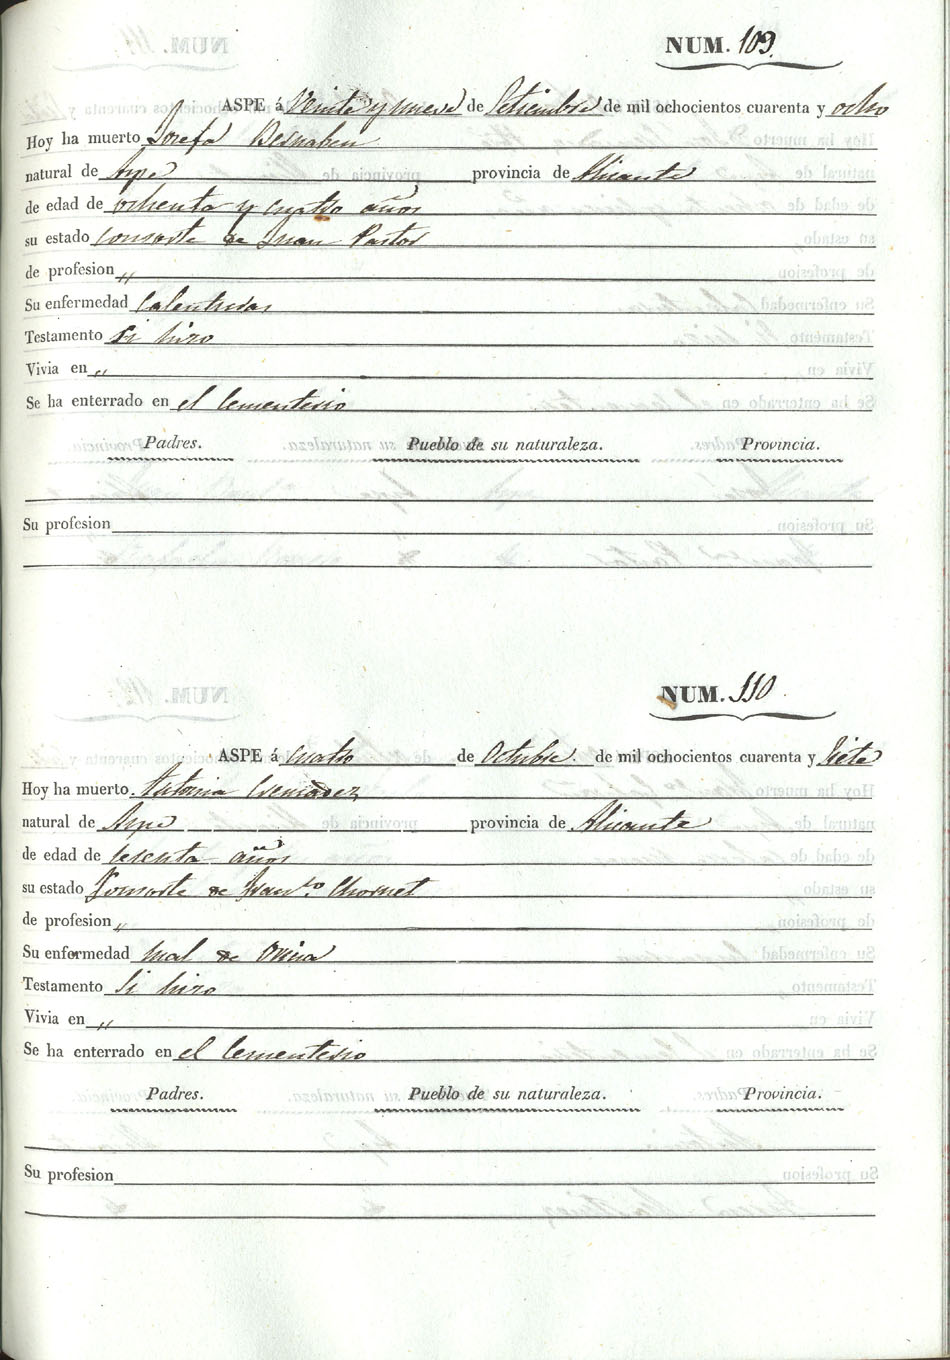 NUM. 109.
ASPE á Veinte y nueve de Setiembre de mil ochocientos cuarenta y ocho
Hoy ha muerto Josefa Besnaben
natural de Aspe provincia de Alicante
de edad de ochenta y cuatro años
su estado consorte de Juan Pastor
de profesion „
Su enfermedad Calenturas
Testamento si hizo
Vivia en „
Se ha enterrado en el Cementerio
Padres. Pueblo de su naturaleza. Provincia.
Su profesion
NUM. 110
ASPE á cuatro de Octubre. de mil ochocientos cuarenta y siete
Hoy ha muerto Antonia
natural de Aspe provincia de Alicante
de edad de sesenta años
su estado Consorte de Fran.co Chornet
de profesion „
Su enfermedad mal de Orina
Testamento Si hizo
Vivia en „
Se ha enterrado en el Cementerio
Padres. Pueblo de su naturaleza. Provincia.
Su profesion